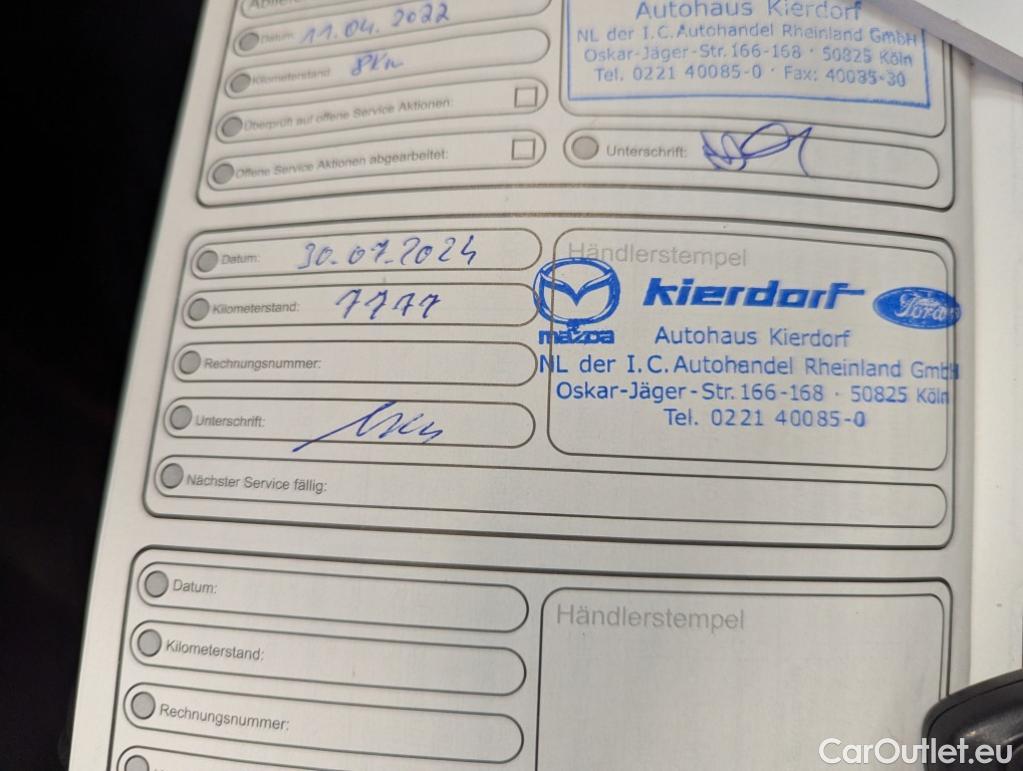 Datum: 11.04.2022
Kilometerstand: 8Km
Überprüft auf offene Service Aktionen:
Offene Service Aktionen abgearbeitet:
Autohaus Kierdorf
NL der I.C. Autohandel Rheinland GmbH
Oskar-Jäger-Str. 166-168 · 50825 Köln
Tel. 0221 40085-0 · Fax: 40085-30
Unterschrift:
Datum: 30.07.2024
Kilometerstand: 7777
Rechnungsnummer:
Unterschrift:
Nächster Service fällig:
Händlerstempel
mazda kierdorf Ford
Autohaus Kierdorf
NL der I.C. Autohandel Rheinland GmbH
Oskar-Jäger-Str. 166-168 · 50825 Köln
Tel. 0221 40085-0
Datum:
Kilometerstand:
Rechnungsnummer:
Händlerstempel
CarOutlet.eu